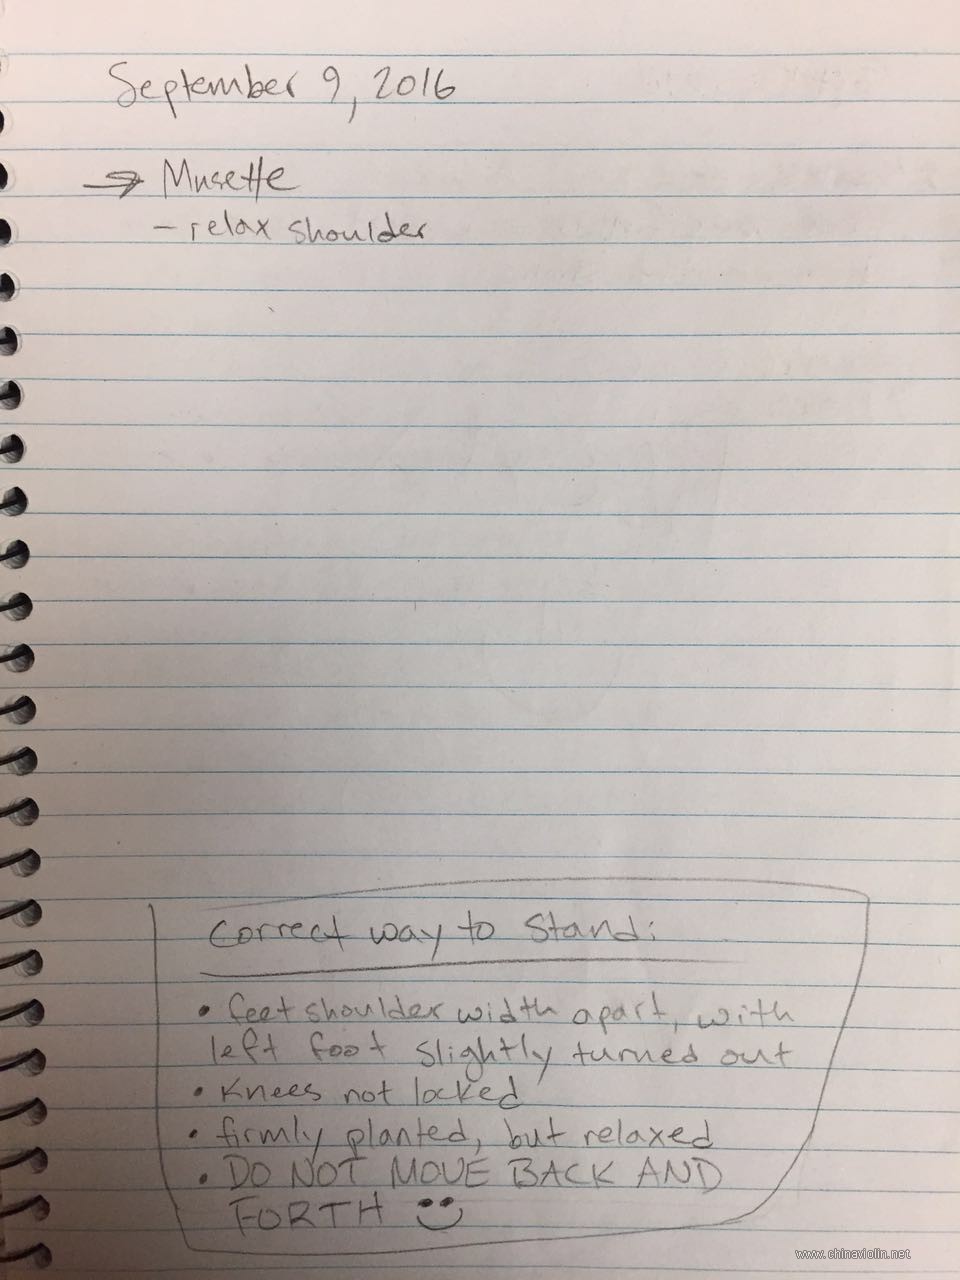 September 9, 2016
→ Musette
- relax shoulder
correct way to stand:
• feet shoulder width apart, with
left foot slightly turned out
• Knees not locked
• firmly planted, but relaxed
• DO NOT MOVE BACK AND
FORTH
www.chinaviolin.net